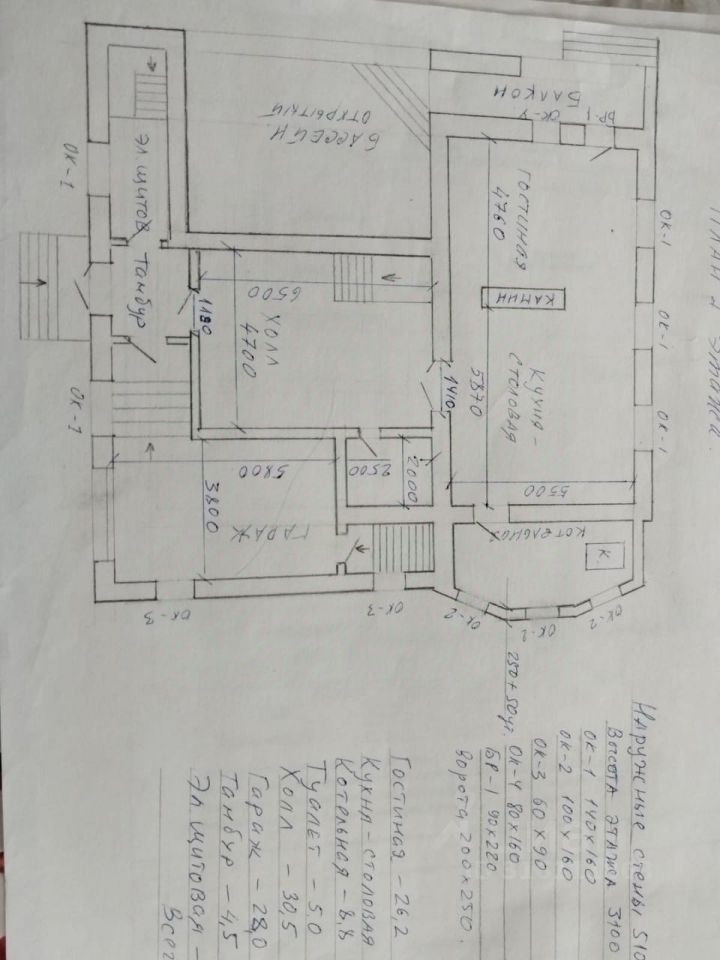 План 1 этажа.
Балкон
БР-1
ОК-4
Бассейн
открытый
эл. щитов
Тамбур
ОК-1
ОК-1
ОК-1
ОК-1
ОК-1
Гостиная
4760
Камин
Кухня-
столовая
5870
5500
1410
6500
Холл
4700
1180
2500
2000
5800
3800
Гараж
Котельная
К.
ОК-3
ОК-3
ОК-2
ОК-2
ОК-2
250+50ут.
Наружные стены 510
Высота этажа 3100
ОК-1 140х160
ОК-2 100х160
ОК-3 60х90
ОК-4 80х160
БР-1 90х220
Ворота 200х250.
Гостиная - 26,2
Кухня-столовая
Котельная - 8,8
Туалет - 5,0
Холл - 30,5
Гараж - 28,0
Тамбур - 4,5
Эл. щитовая -
Всег